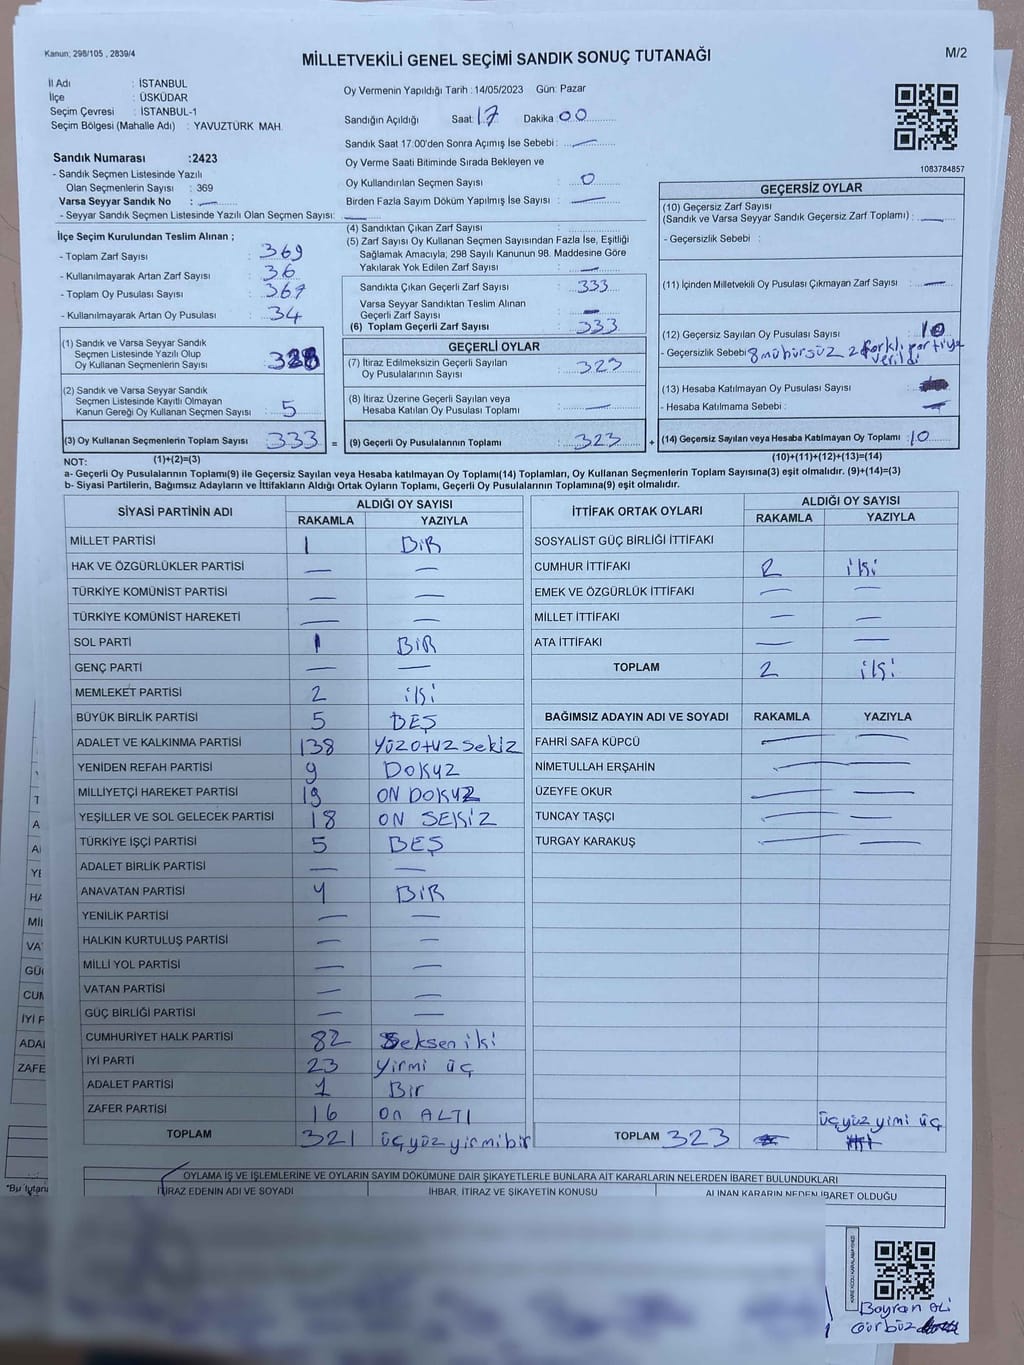 Kanun; 298/105 , 2839/4
MİLLETVEKİLİ GENEL SEÇİMİ SANDIK SONUÇ TUTANAĞI
M/2
İl Adı : İSTANBUL
İlçe : ÜSKÜDAR
Seçim Çevresi : İSTANBUL-1
Seçim Bölgesi (Mahalle Adı) : YAVUZTÜRK MAH.
Sandık Numarası :2423
- Sandık Seçmen Listesinde Yazılı
Olan Seçmenlerin Sayısı : 369
Varsa Seyyar Sandık No : —
- Seyyar Sandık Seçmen Listesinde Yazılı Olan Seçmen Sayısı: —
Oy Vermenin Yapıldığı Tarih : 14/05/2023 Gün: Pazar
Sandığın Açıldığı Saat: 17 Dakika: 00
Sandık Saat 17:00'den Sonra Açımış İse Sebebi : —
Oy Verme Saati Bitiminde Sırada Bekleyen ve
Oy Kullandırılan Seçmen Sayısı : 0
Birden Fazla Sayım Döküm Yapılmış İse Sayısı : —
1083784857
İlçe Seçim Kurulundan Teslim Alınan ;
- Toplam Zarf Sayısı : 369
- Kullanılmayarak Artan Zarf Sayısı : 36
- Toplam Oy Pusulası Sayısı : 367
- Kullanılmayarak Artan Oy Pusulası : 34
(1) Sandık ve Varsa Seyyar Sandık
Seçmen Listesinde Yazılı Olup
Oy Kullanan Seçmenlerin Sayısı : 328
(2) Sandık ve Varsa Seyyar Sandık
Seçmen Listesinde Kayıtlı Olmayan
Kanun Gereği Oy Kullanan Seçmen Sayısı : 5
(3) Oy Kullanan Seçmenlerin Toplam Sayısı : 333
(1)+(2)=(3)
(4) Sandıktan Çıkan Zarf Sayısı :
(5) Zarf Sayısı Oy Kullanan Seçmen Sayısından Fazla İse, Eşitliği
Sağlamak Amacıyla; 298 Sayılı Kanunun 98. Maddesine Göre
Yakılarak Yok Edilen Zarf Sayısı : —
Sandıkta Çıkan Geçerli Zarf Sayısı : 333
Varsa Seyyar Sandıktan Teslim Alınan
Geçerli Zarf Sayısı : —
(6) Toplam Geçerli Zarf Sayısı : 333
GEÇERLİ OYLAR
(7) İtiraz Edilmeksizin Geçerli Sayılan
Oy Pusulalarının Sayısı : 323
(8) İtiraz Üzerine Geçerli Sayılan veya
Hesaba Katılan Oy Pusulası Toplamı : —
= (9) Geçerli Oy Pusulalarının Toplamı : 323
GEÇERSİZ OYLAR
(10) Geçersiz Zarf Sayısı
(Sandık ve Varsa Seyyar Sandık Geçersiz Zarf Toplamı) : —
- Geçersizlik Sebebi :
(11) İçinden Milletvekili Oy Pusulası Çıkmayan Zarf Sayısı : —
(12) Geçersiz Sayılan Oy Pusulası Sayısı : 10
- Geçersizlik Sebebi : 8 mühürsüz 2 farklı partiye
verildi
(13) Hesaba Katılmayan Oy Pusulası Sayısı :
- Hesaba Katılmama Sebebi : —
+ (14) Geçersiz Sayılan veya Hesaba Katılmayan Oy Toplamı : 10
(10)+(11)+(12)+(13)=(14)
NOT:
a- Geçerli Oy Pusulalarının Toplamı(9) ile Geçersiz Sayılan veya Hesaba katılmayan Oy Toplamı(14) Toplamları, Oy Kullanan Seçmenlerin Toplam Sayısına(3) eşit olmalıdır. (9)+(14)=(3)
b- Siyasi Partilerin, Bağımsız Adayların ve İttifakların Aldığı Ortak Oyların Toplamı, Geçerli Oy Pusulalarının Toplamına(9) eşit olmalıdır.
SİYASİ PARTİNİN ADI ALDIĞI OY SAYISI
RAKAMLA YAZIYLA
MİLLET PARTİSİ 1 BİR
HAK VE ÖZGÜRLÜKLER PARTİSİ — —
TÜRKİYE KOMÜNİST PARTİSİ — —
TÜRKİYE KOMÜNİST HAREKETİ — —
SOL PARTİ 1 BİR
GENÇ PARTİ — —
MEMLEKET PARTİSİ 2 iki
BÜYÜK BİRLİK PARTİSİ 5 BEŞ
ADALET VE KALKINMA PARTİSİ 138 yüzotuz sekiz
YENİDEN REFAH PARTİSİ 9 Dokuz
MİLLİYETÇİ HAREKET PARTİSİ 19 ON DOKUZ
YEŞİLLER VE SOL GELECEK PARTİSİ 18 ON SEKİZ
TÜRKİYE İŞÇİ PARTİSİ 5 BEŞ
ADALET BİRLİK PARTİSİ — —
ANAVATAN PARTİSİ 1 BİR
YENİLİK PARTİSİ — —
HALKIN KURTULUŞ PARTİSİ — —
MİLLİ YOL PARTİSİ — —
VATAN PARTİSİ — —
GÜÇ BİRLİĞİ PARTİSİ — —
CUMHURİYET HALK PARTİSİ 82 seksen iki
İYİ PARTİ 23 yirmi üç
ADALET PARTİSİ 1 Bir
ZAFER PARTİSİ 16 on ALTI
TOPLAM 321 üçyüz yirmibir
İTTİFAK ORTAK OYLARI ALDIĞI OY SAYISI
RAKAMLA YAZIYLA
SOSYALİST GÜÇ BİRLİĞİ İTTİFAKI
CUMHUR İTTİFAKI 2 iki
EMEK VE ÖZGÜRLÜK İTTİFAKI — —
MİLLET İTTİFAKI — —
ATA İTTİFAKI — —
TOPLAM 2 iki
BAĞIMSIZ ADAYIN ADI VE SOYADI RAKAMLA YAZIYLA
FAHRİ SAFA KÜPCÜ — —
NİMETULLAH ERŞAHİN — —
ÜZEYFE OKUR — —
TUNCAY TAŞÇI — —
TURGAY KARAKUŞ — —
üçyüz yimi üç
TOPLAM 323
OYLAMA İŞ VE İŞLEMLERİNE VE OYLARIN SAYIM DÖKÜMÜNE DAİR ŞİKAYETLERLE BUNLARA AİT KARARLARIN NELERDEN İBARET BULUNDUKLARI
İTİRAZ EDENİN ADI VE SOYADI İHBAR, İTİRAZ VE ŞİKAYETİN KONUSU ALINAN KARARIN NEDEN İBARET OLDUĞU
Bayram Ali
Gürbüz